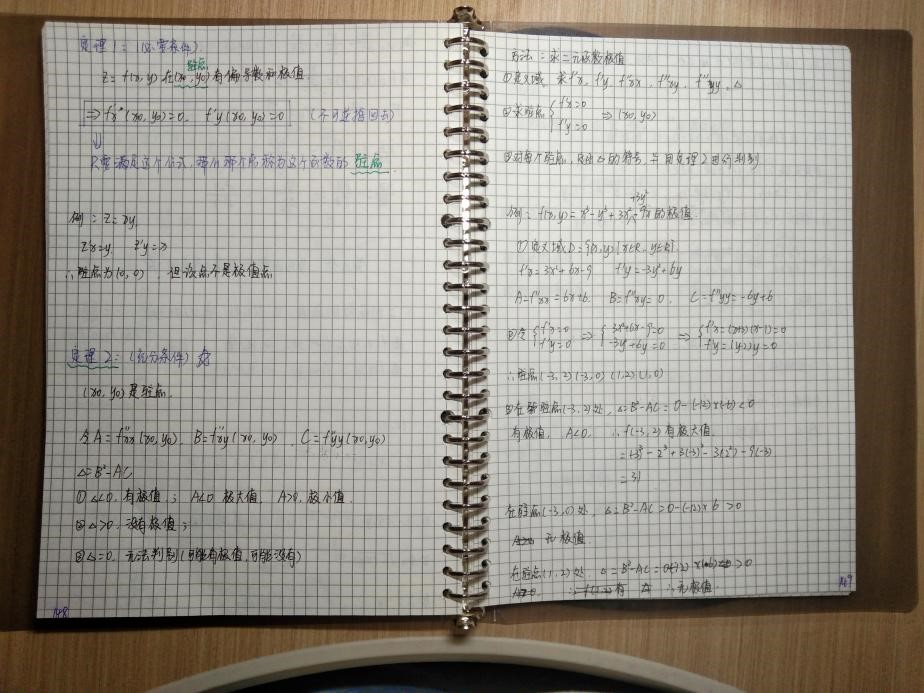 定理1：(必要条件)
驻点
Z=f(x,y)在(x0,y0)有偏导数和极值
⇒f'x(x0,y0)=0, f'y(x0,y0)=0 (不可逆推回去)
⇓
只要满足这个公式,那么那个点称为这个函数的驻点.
例：Z=xy
Z'x=y Z'y=x
∴驻点为(0,0), 但该点不是极值点
定理2：(充分条件) ☆
(x0,y0)是驻点.
令A=f''xx(x0,y0), B=f''xy(x0,y0), C=f''yy(x0,y0)
△=B²-AC
①△<0,有极值；A<0 极大值, A>0,极小值.
②△>0,没有极值；
③△=0,无法判别(可能有极值,可能没有)
148
方法：求二元函数极值
①定义域,求f'x, f'y f''xx, f''xy, f''yy, △
②求驻点{f'x=0 ⇒(x0,y0)
f'y=0
③对每个驻点,
+3y²
例：f(x,y)=x³-y³+3x²-9x的极值.
①定义域D={(x,y)|x∈R, y∈R}
f'x=3x²+6x-9 f'y=-3y²+6y
A=f''xx=6x+6, B=f''xy=0, C=f''yy=-6y+6
②令{f'x=0 ⇒{3x²+6x-9=0 ⇒{f'x=(x+3)(x-1)=0
f'y=0 -3y²+6y=0 f'y=(y-2)y=0
∴驻点(-3,2)(-3,0)(1,2)(1,0)
③在驻点(-3,2)处, △=B²-AC=0-(-12)×(-6)<0
有极值, A<0, ∴f(-3,2)有极大值.
=(-3)³-2³+3(-3)²+3(2²)-9(-3)
=31
在驻点(-3,0)处, △=B²-AC=0-(-12)×6>0
无极值.
在驻点(1,2)处, △=B²-AC= >0
∴无极值.
149